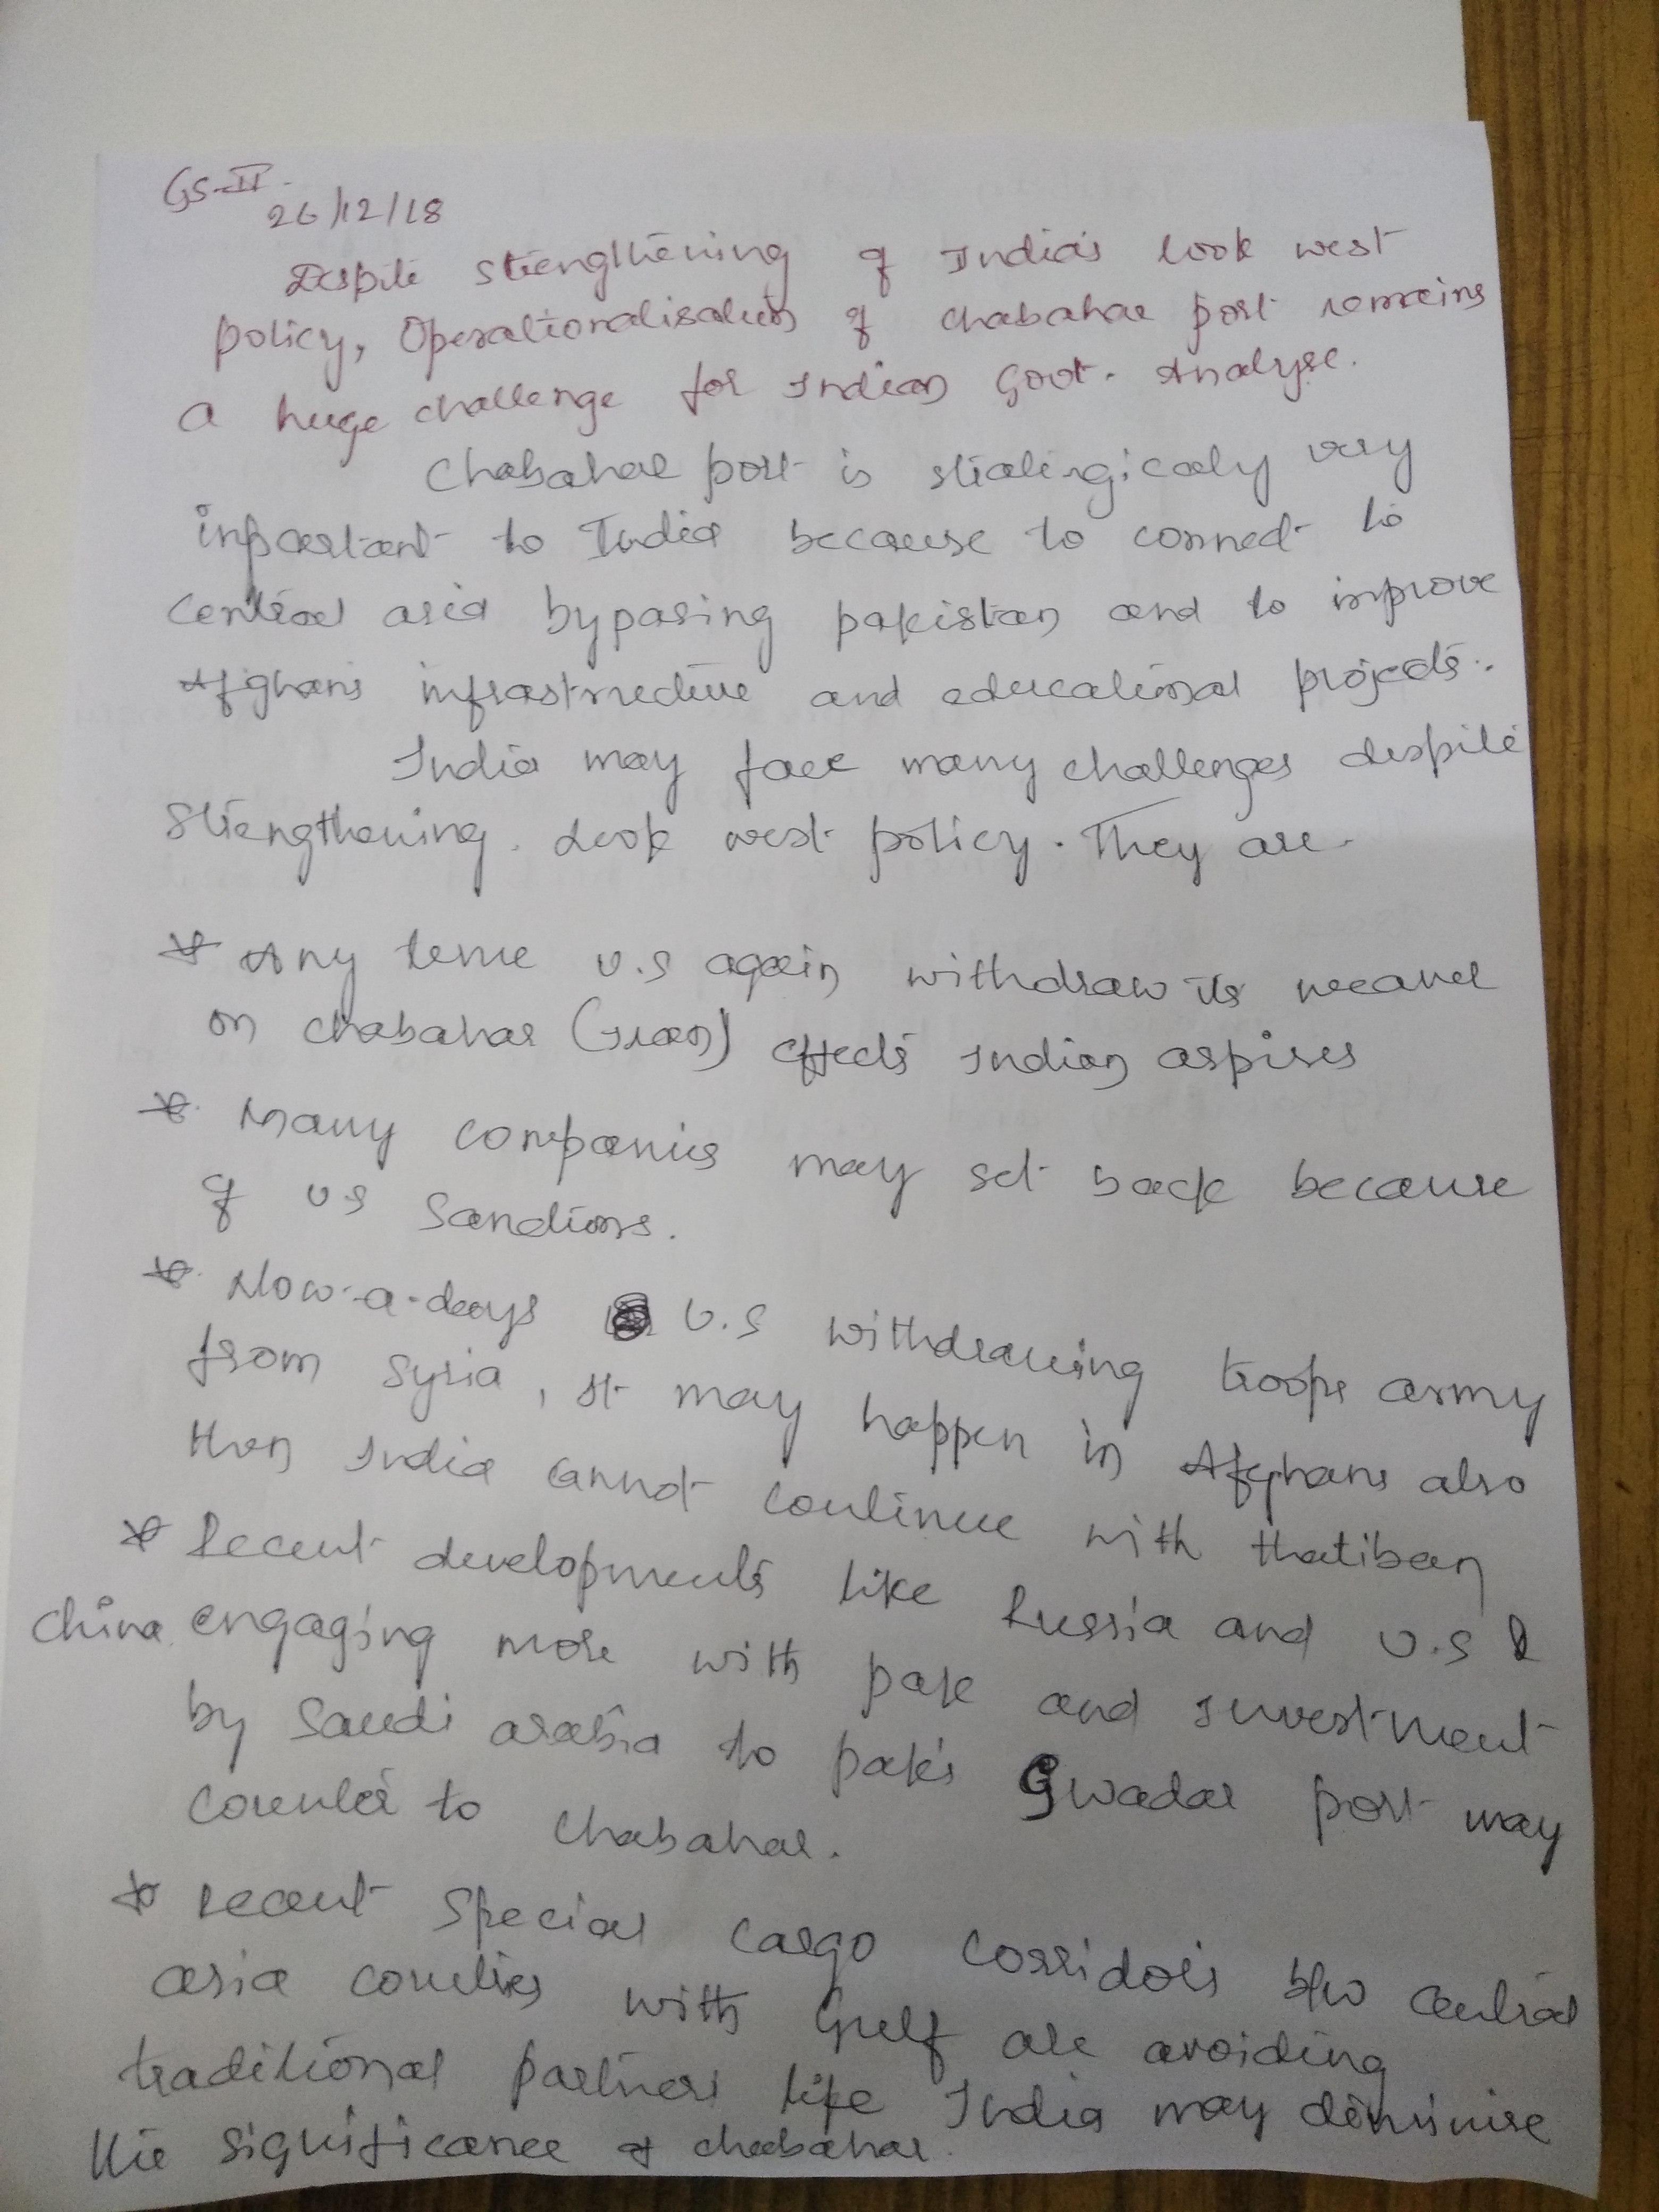 GS-II
26/12/18
Despite strengthening of India's look west
policy, Operationalisation of chabahar port remains
a huge challenge for Indian Govt. Analyse.
Chabahar port is very
inportant to India because to connect to
Central asia bypasing pakistan and to improve
Afghans infrastructure and educational projects.
India may face many challenges despite
Strengthening Look west policy. They are.
* Any U.S again withdraw its
on chabahar (Iran) effects Indian aspires
* Many companies may set back because
of US Sanctions.
* Now-a-days U.S withdrawing troops army
from Syria, it may happen in Afghans also
then India cannot continue with thaliban
* Recent developments like Russia and U.S &
China engaging more with pak and Investment
by Saudi arabia to pak's Gwadar port may
counter to chabahar.
* recent Special cargo corridors b/w central
asia countries with Gulf are avoiding
traditional partners like India may diminise
the significance of chabahar.